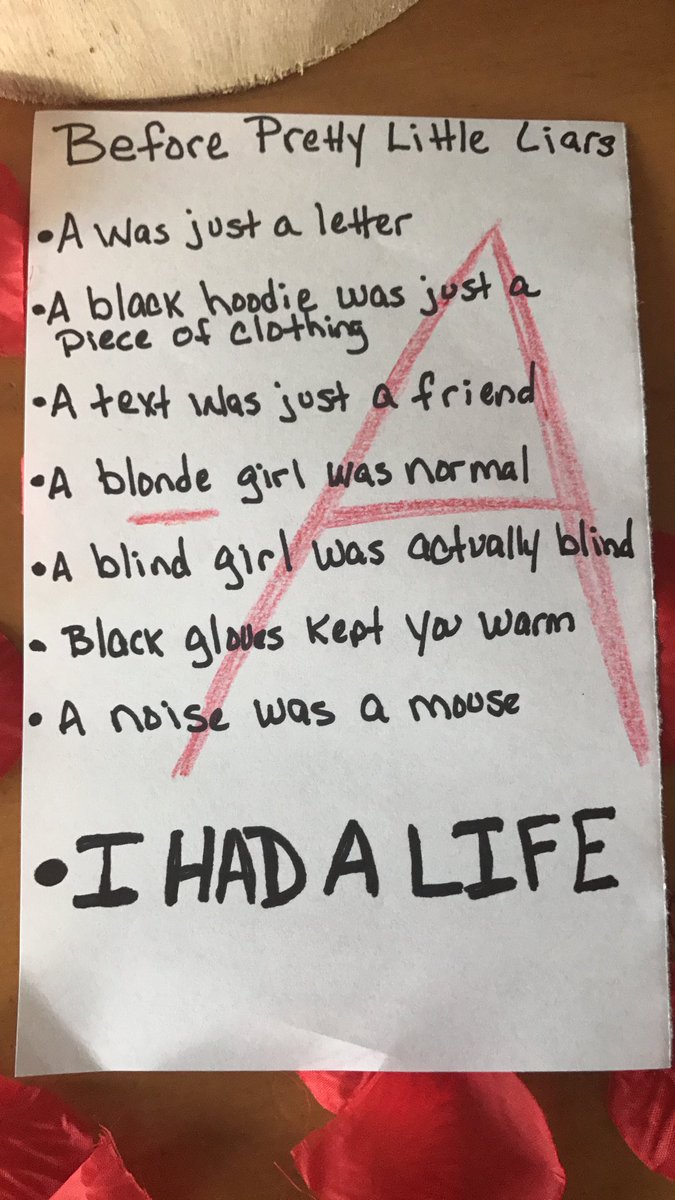 Before Pretty Little Liars
• A was just a letter
• A black hoodie was just a
piece of clothing
• A text was just a friend
• A blonde girl was normal
• A blind girl was actually blind
• Black gloves kept you warm
• A noise was a mouse
• I HAD A LIFE
A